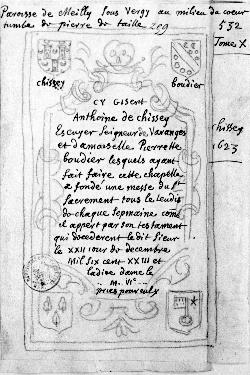 Paroisse de Meilly sous Vergy au milieu du coeur
tumbe de pierre de taille 259
532
Tome X
chissey boudier
chissey
1623
CY Gisent
Anthoine de chissey
Escuyer Seigneur de Varanges
et damoiselle Pierrette
boudier lesquels ayant
fait faire cette chapelle
a fondé une messe du St
sacrement tous les Jeudis
de chaque sepmaine come
il appert par son testament
qui decederent ledit sieur
le XXII iour de decembre
Mil six cent XXIII et
ladite dame le
M. VIc
pries pour eulx